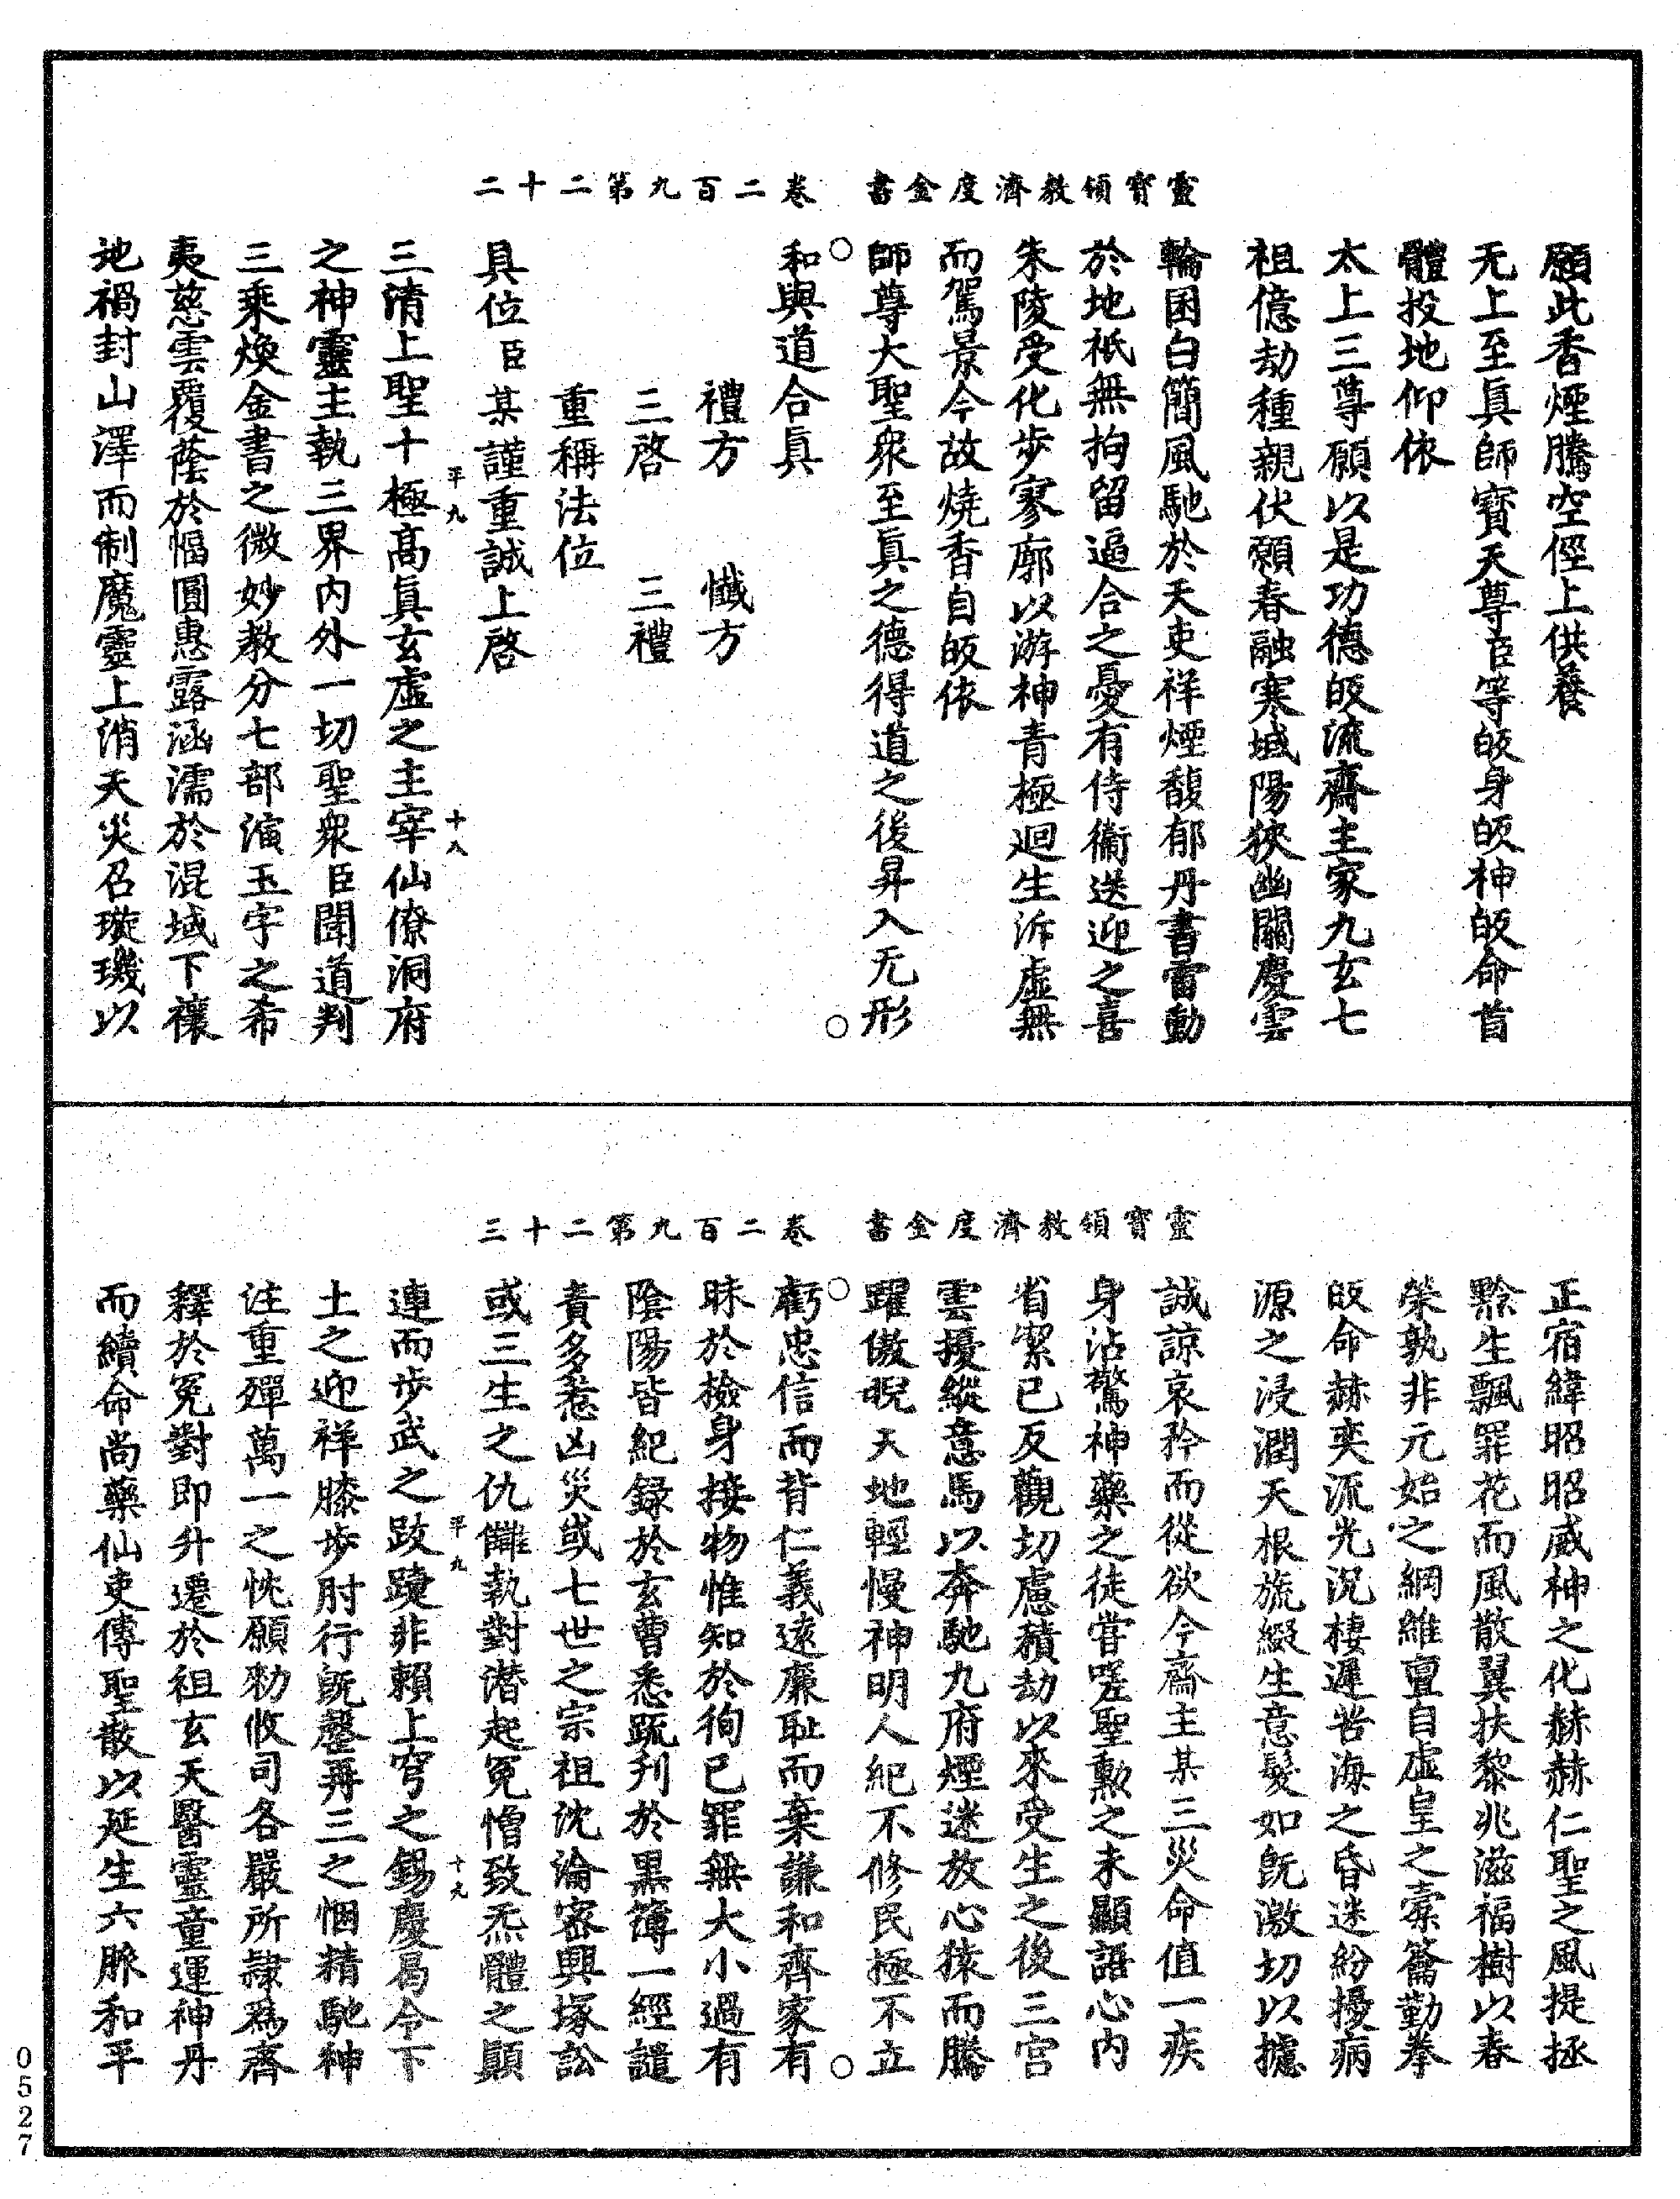 靈寶領教濟度金書　卷二百九第二十二
願此香煙騰空徑上供養
无上至眞師寶天尊臣等皈身皈神皈命首
體投地仰依
太上三尊願以是功德皈流齋主家九玄七
祖億劫種親伏願春融寒域陽狹幽關慶雲
輪囷白簡風馳於天吏祥煙馥郁丹書雷動
於地祇無拘留逼合之憂有侍衞送迎之喜
朱陵受化步寥廓以游神青極迴生泝虛無
而駕景今故燒香自皈依
師尊大聖衆至眞之德得道之後昇入无形
和與道合眞
禮方　懺方
三啓　三禮
重稱法位
具位臣某謹重誠上啓
平九　十八
三清上聖十極高眞玄虛之主宰仙僚洞府
之神靈主執三界內外一切聖衆臣聞道判
三乘煥金書之微妙教分七部演玉字之希
夷慈雲覆蔭於幅圓惠露涵濡於混域下禳
地禍封山澤而制魔靈上消天災召璇璣以
靈寶領教濟度金書　卷二百九第二十三
正宿緯昭昭威神之化赫赫仁聖之風提拯
黔生飄罪花而風散翼扶黎兆滋福樹以春
榮孰非元始之綱維亶自虛皇之槖籥勤拳
皈命赫奕流光況棲遲苦海之昏迷紛擾病
源之浸潤天根旒綴生意髮如旣激切以攄
誠諒哀矜而從欲今齋主某三災命值一疾
身沾驚神藥之徒嘗嗟聖勲之未顯語心內
省絜己反觀切慮積劫以來受生之後三宮
雲擾縱意馬以奔馳九府煙迷放心猿而騰
躍傲睨天地輕慢神明人紀不修民極不立
虧忠信而背仁義遠廉恥而棄謙和齊家有
昧於撿身接物惟知於徇已罪無大小過有
陰陽皆紀録於玄曹悉疏列於黑簿一經譴
責多惹凶災或七世之宗祖沈淪密興塚訟
或三生之仇讎執對潛起寃憎致炁體之顚
平九　十九
連而步武之跛躄非賴上穹之錫慶曷令下
土之迎祥膝步肘行旣罄再三之悃精馳神
注重殫萬一之忱願勑攸司各嚴所隷爲齊
釋於寃對即升遷於祖玄天醫靈童運神丹
而續命尚藥仙吏傳聖散以延生六脈和平
0527